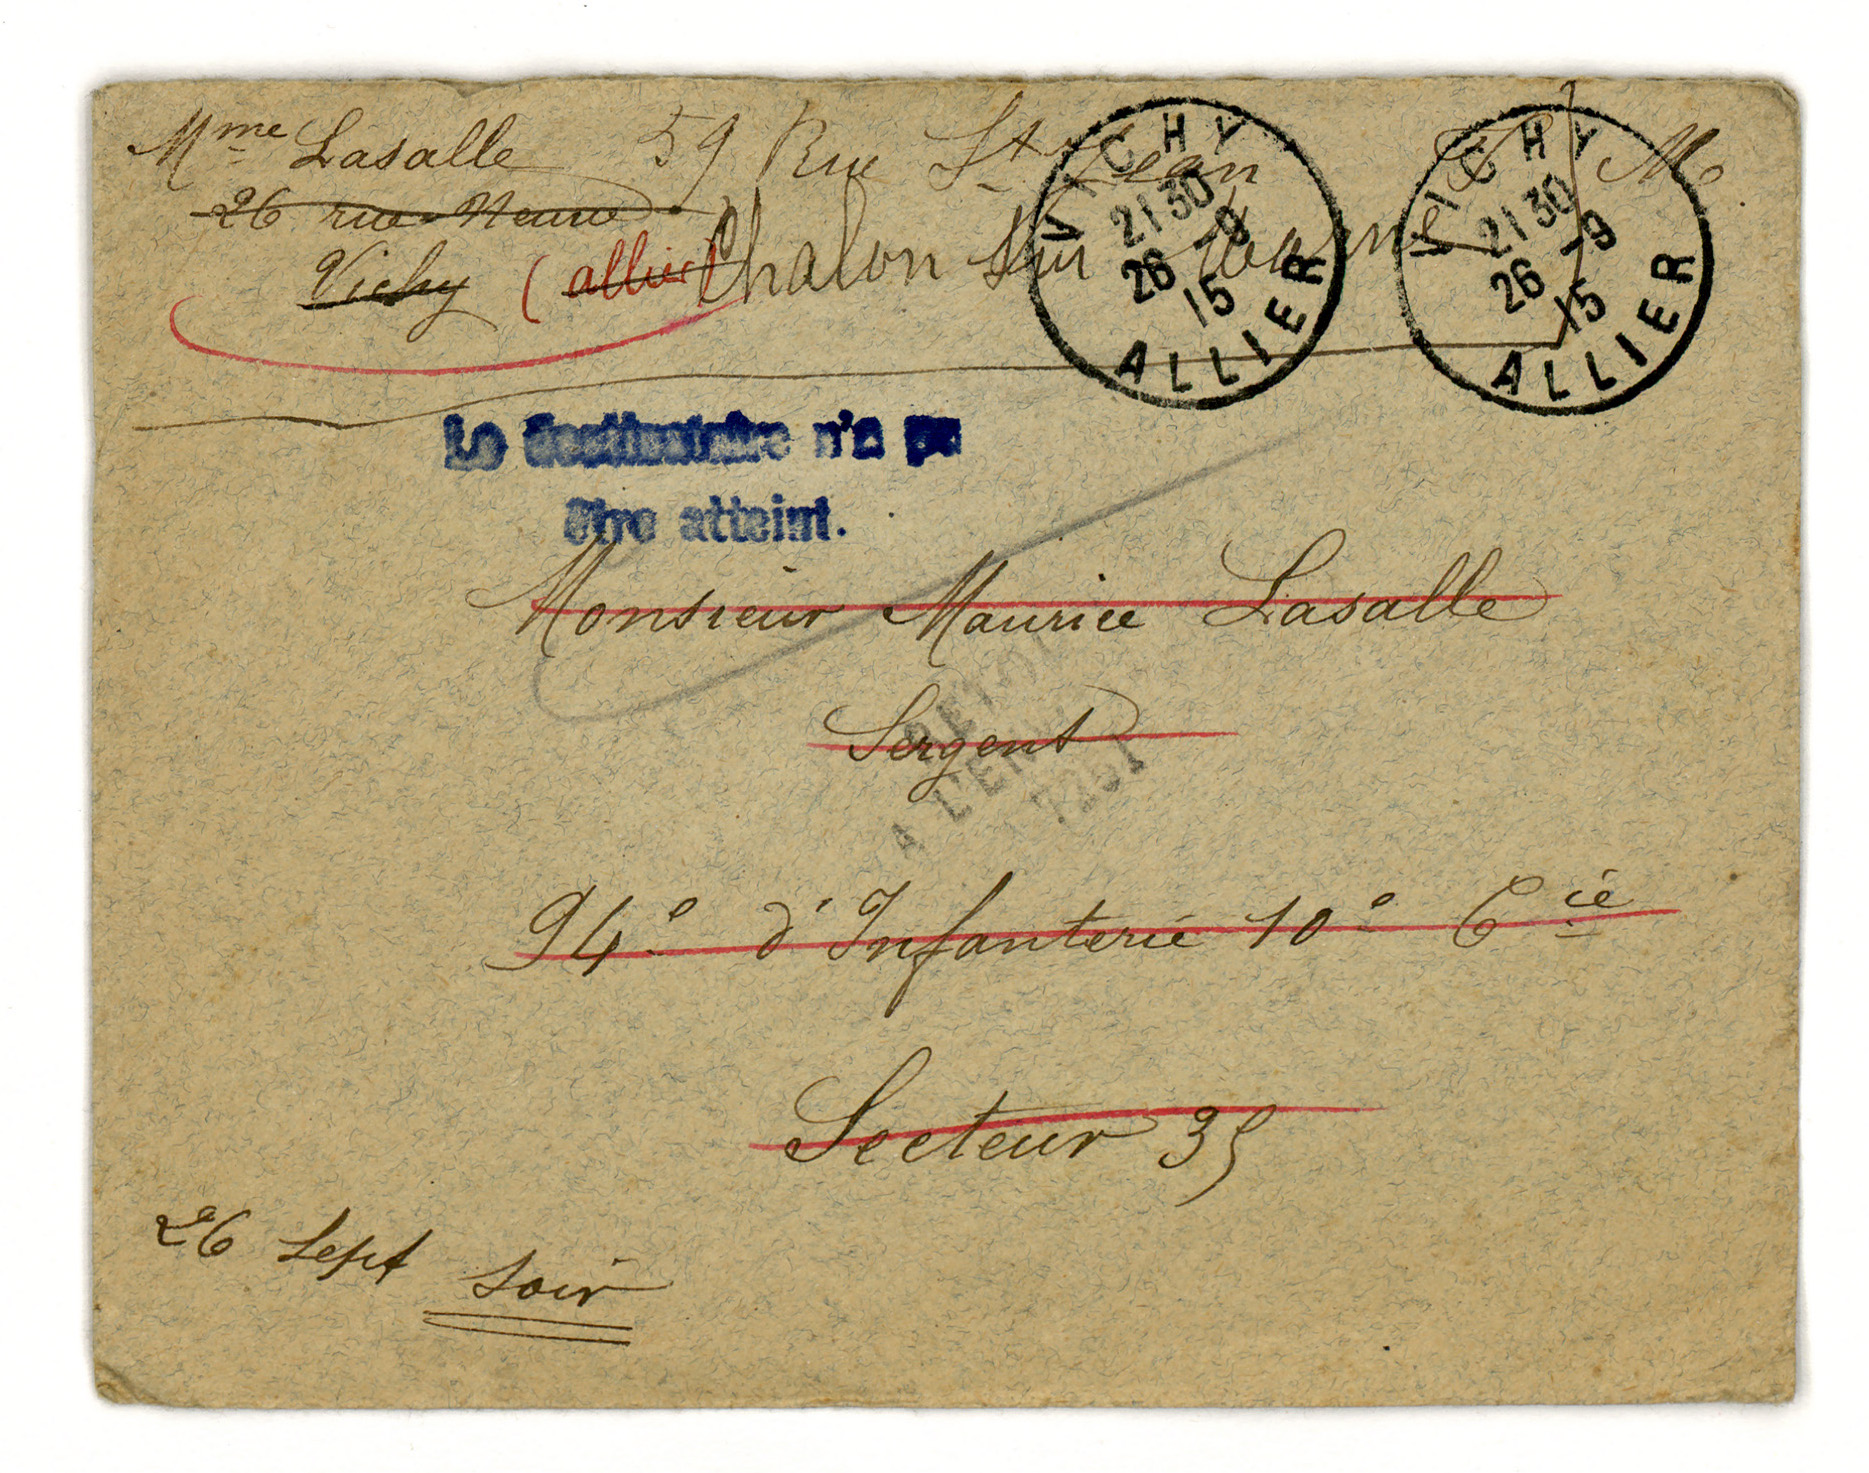 Mme Lasalle 59 Rue St Jean F. M
26 rue Neuve
Vichy (allier) Chalon sur Saone
VICHY
21 30
26 -9
15
ALLIER
VICHY
21 30
26 -9
15
ALLIER
Le destinataire n'a pu
être atteint.
Monsieur Maurice Lasalle
Sergent
RETOUR
A L'ENV
94e d'Infanterie 10e Cie
Secteur 35
26 Sept soir